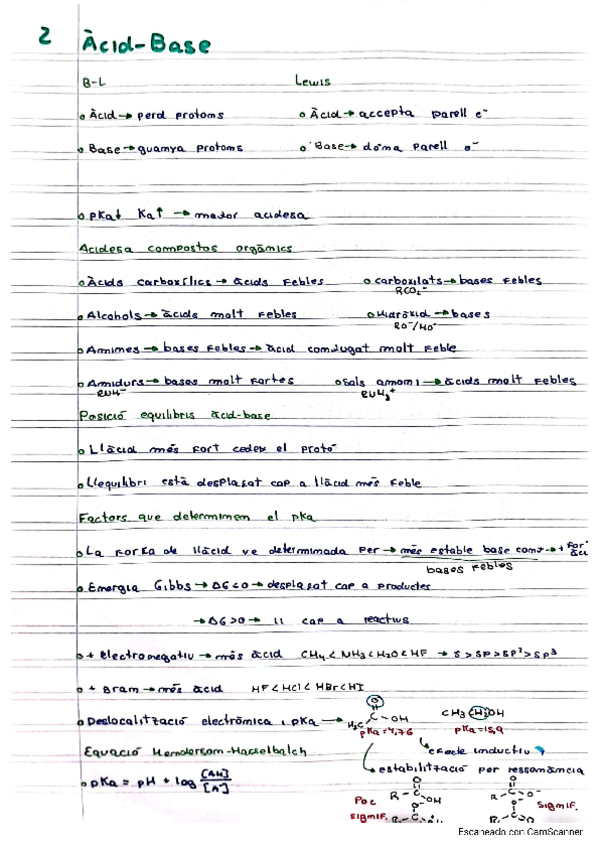 2 Àcid-Base
B-L Lewis
Àcid → perd protons Àcid → accepta parell e⁻
Base → guanya protons Base → dona parell e⁻
pKa↓ Ka↑ → major acidesa
Acidesa compostos orgànics
Àcids carboxílics → àcids febles carboxilats → bases febles
RCO₂⁻
Alcohols → àcids molt febles Hidròxid → bases
RO⁻/HO⁻
Amines → bases febles → àcid conjugat molt feble
Amidurs → bases molt fortes sals amoni → àcids molt febles
RNH⁻ RNH₃⁺
Posició equilibris àcid-base
L'àcid més fort cedeix el protó
L'equilibri està desplaçat cap a l'àcid més feble
Factors que determinen el pKa
La força de l'àcid ve determinada per → més estable base conj → + for
àci
bases febles
Energia Gibbs → ΔG<0 → desplaçat cap a productes
→ ΔG>0 → 11 cap a reactius
+ electronegatiu → més àcid CH₄ < NH₃ < H₂O < HF → s > sp > sp² > sp³
+ gran → més àcid HF < HCl < HBr < HI
Deslocalització electrònica i pKa → H₃C C OH O CH₃CH₂OH
pKa=4,76 pKa=15,9
efecte inductiu
Equació Henderson-Hasselbalch
estabilització per ressonància
pKa = pH + log [AH]/[A⁻]
O R-C OH O R-C O⁻
Poc signif. Signif.
Escaneado con CamScanner